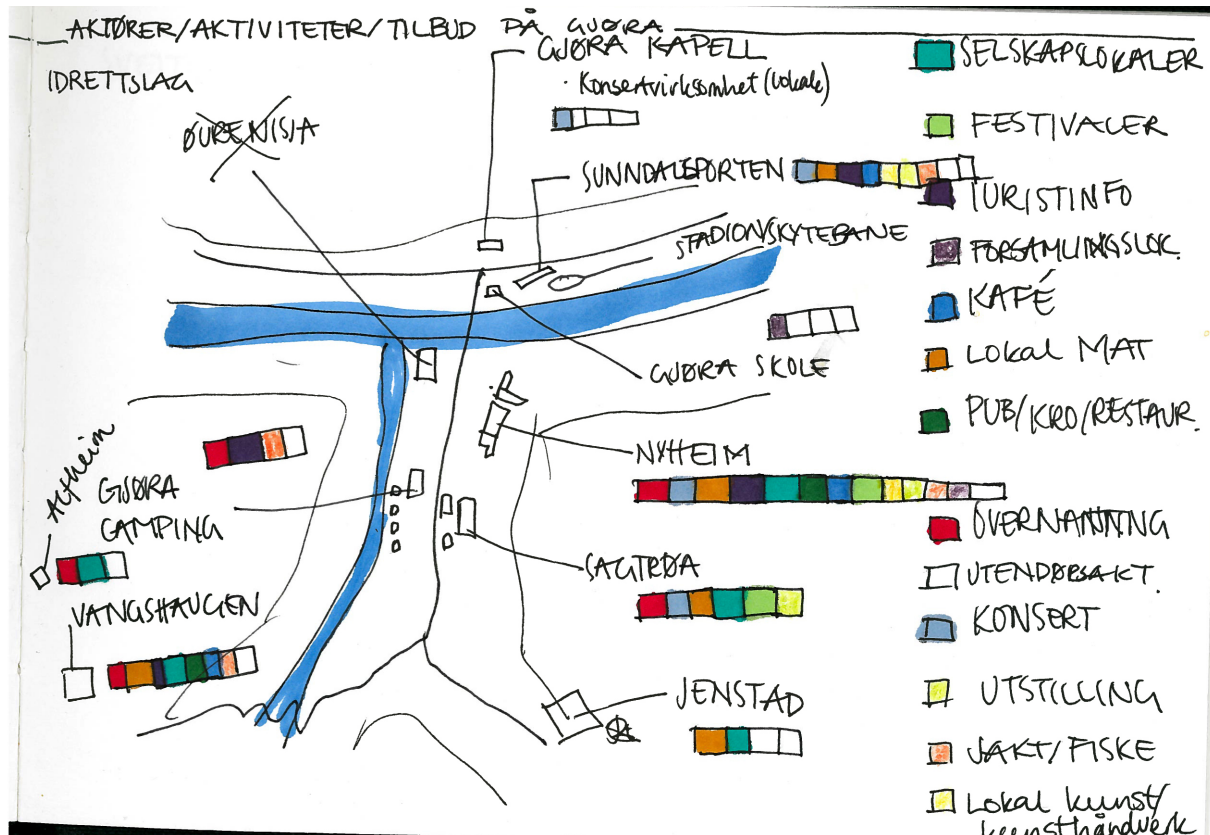 AKTØRER/AKTIVITETER/TILBUD PÅ GJØRA
IDRETTSLAG
GJØRA KAPELL
· Konsertvirksomhet (lokale)
SUNNDALSPORTEN
STADIONSKYTEBANE
GJØRA SKOLE
NYHEIM
Alfheim
GJØRA
CAMPING
SAGTRØA
VANGSHAUGEN
JENSTAD
SELSKAPSLOKALER
FESTIVALER
TURISTINFO
FORSAMLINGSLOK.
KAFÉ
LOKAL MAT
PUB/KRO/RESTAUR.
OVERNATTNING
UTENDØRSAKT.
KONSERT
UTSTILLING
JAKT/FISKE
Lokal kunst/
kunsthåndverk